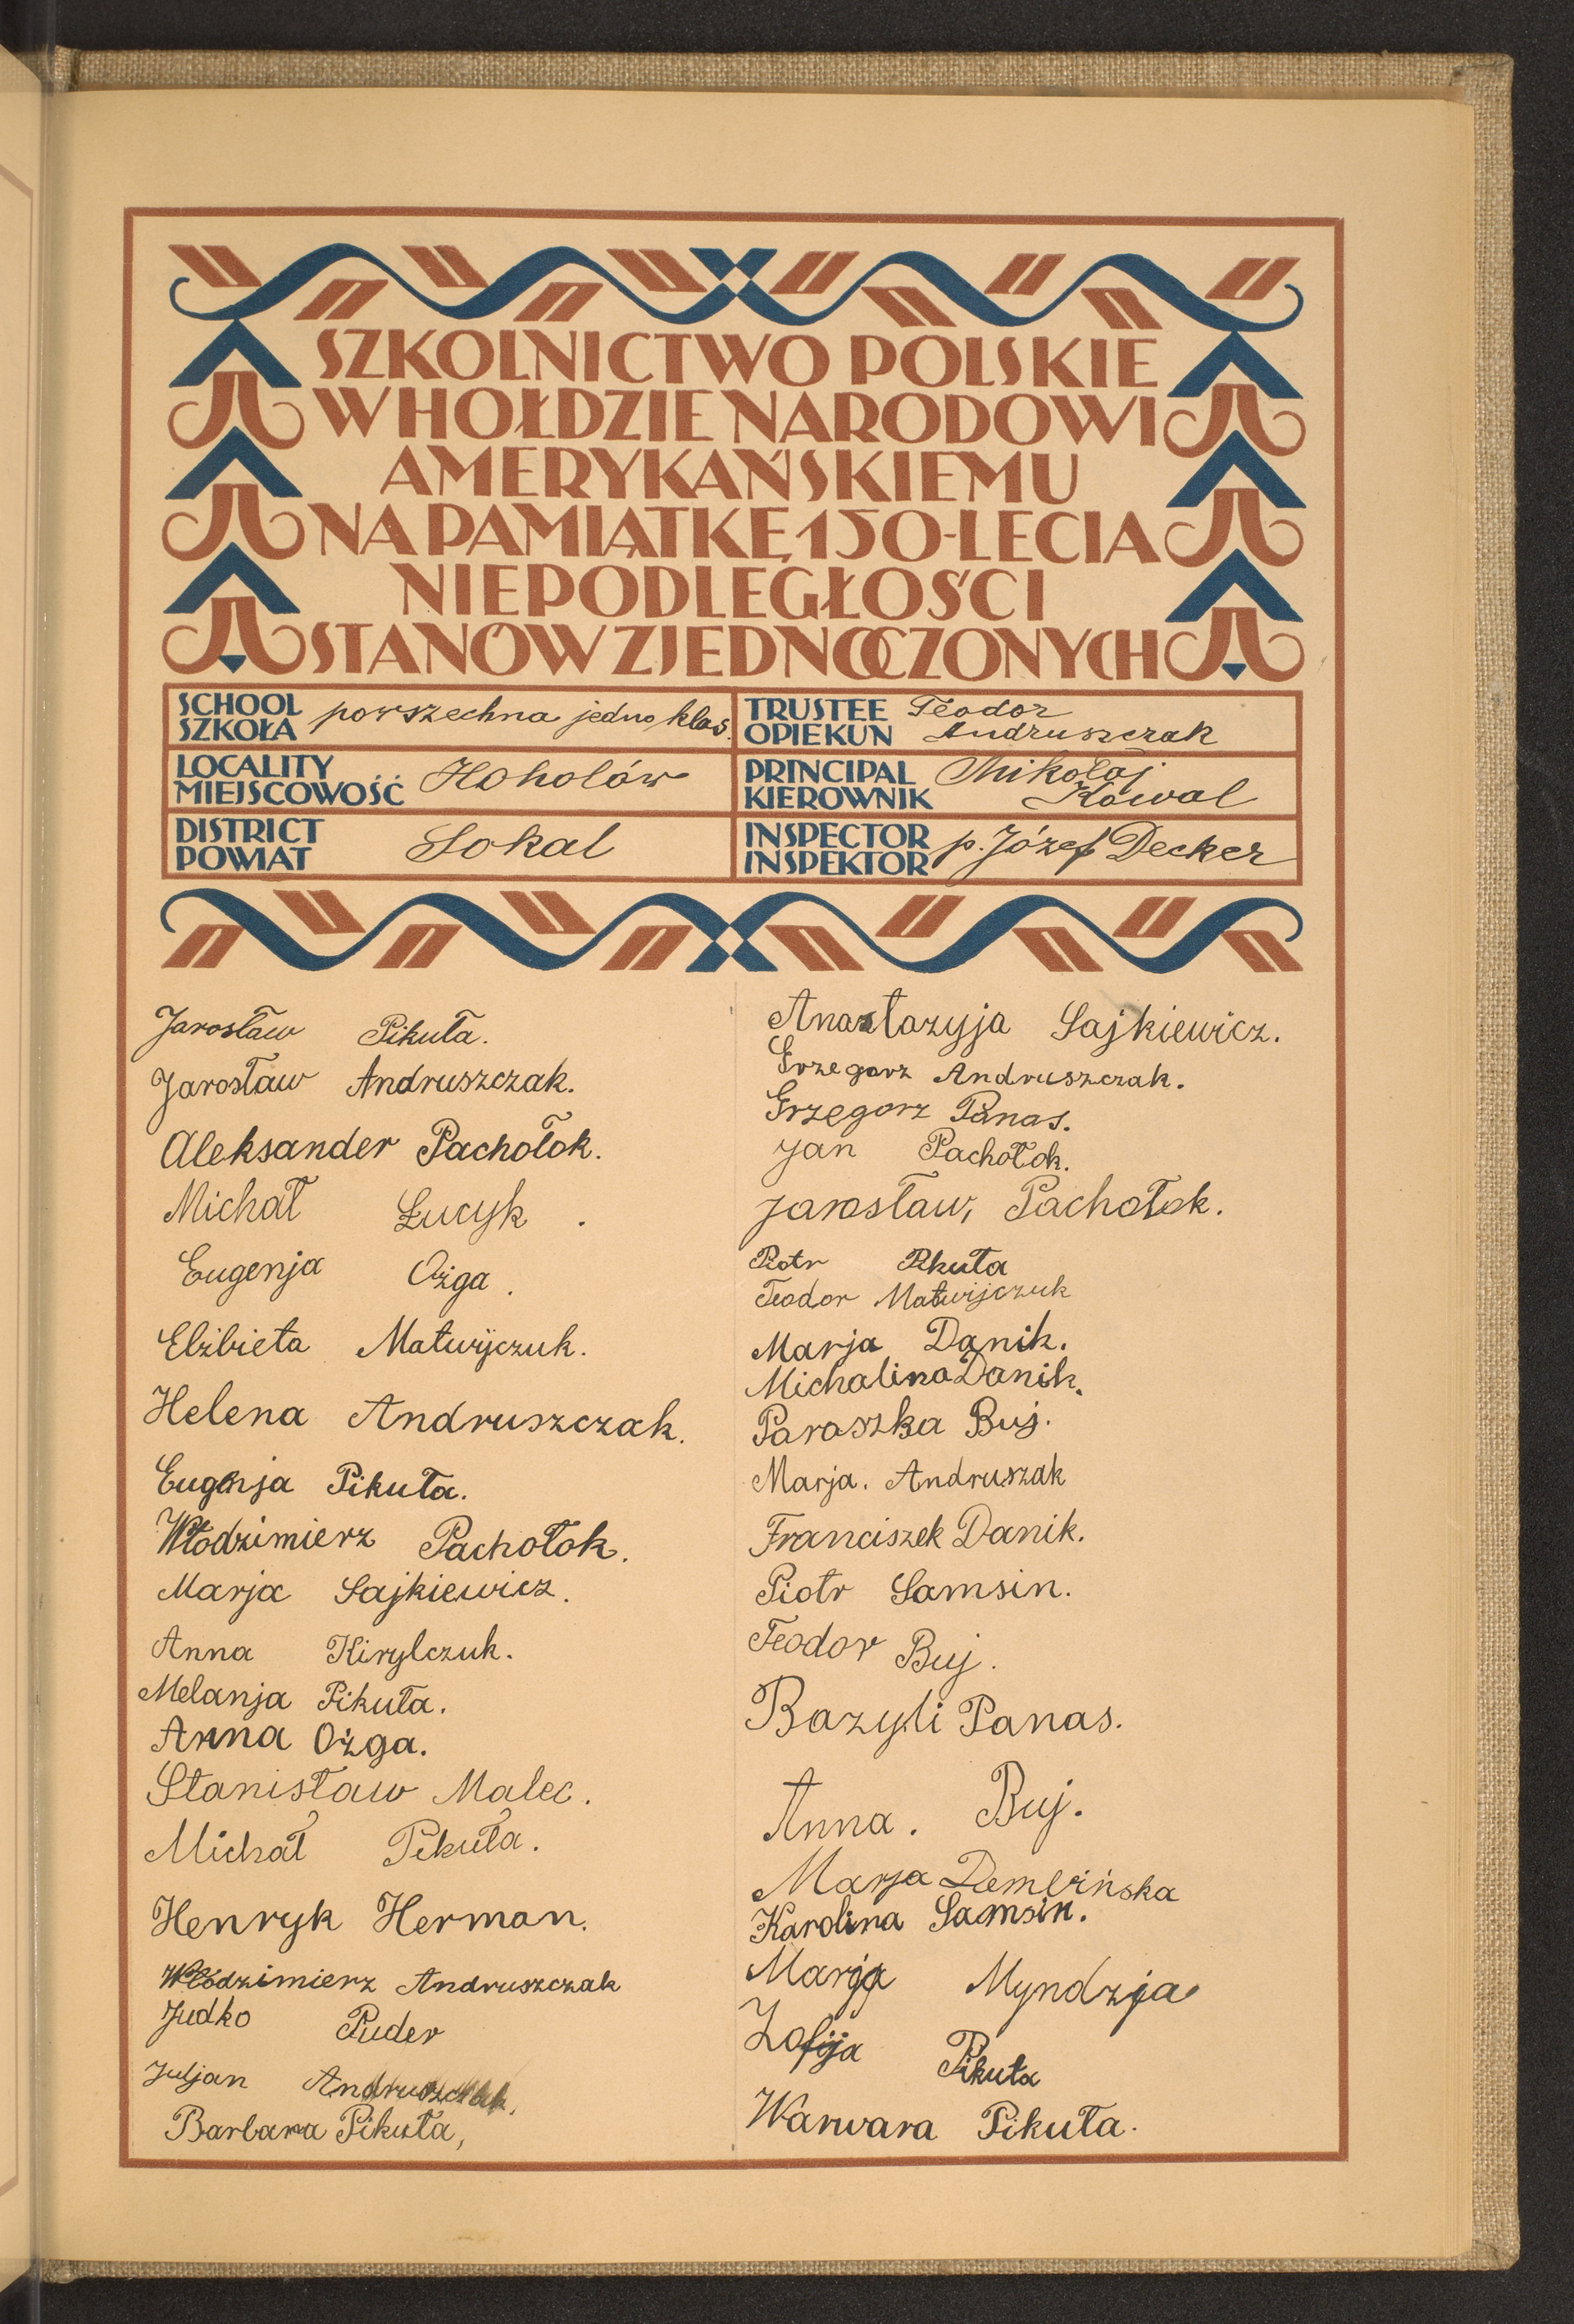 SZKOLNICTWO POLSKIE
W HOŁDZIE NARODOWI
AMERYKAŃSKIEMU
NA PAMIĄTKĘ 150-LECIA
NIEPODLEGŁOŚCI
STANÓW ZJEDNOCZONYCH
SCHOOL
SZKOŁA
powszechna jedno klas.
TRUSTEE
OPIEKUN
Teodor
Andruszczak
LOCALITY
MIEJSCOWOŚĆ
Hoholów
PRINCIPAL
KIEROWNIK
Mikołaj
Kowal
DISTRICT
POWIAT
Sokal
INSPECTOR
INSPEKTOR
p. Józef Decker
Jarosław Pikuła.
Jarosław Andruszczak.
Aleksander Pachołok.
Michał Łucyk.
Eugenja Ożga.
Elżbieta Matwijczuk.
Helena Andruszczak.
Eugenja Pikuła.
Włodzimierz Pachołok.
Marja Sajkiewicz.
Anna Kirylczuk.
Melanja Pikuła.
Anna Ożga.
Stanisław Malec.
Michał Pikuła.
Henryk Herman.
Włodzimierz Andruszczak
Judko Puder
Juljan Andruszczak.
Barbara Pikuła,
Anastazyja Sajkiewicz.
Grzegorz Andruszczak.
Grzegorz Panas.
Jan Pachołok.
Jarosław, Pachołok.
Piotr Pikuła
Teodor Matwijczuk
Marja Danik.
Michalina Danik.
Paraszka Buj.
Marja. Andruszak
Franciszek Danik.
Piotr Samsin.
Teodor Buj.
Bazyli Panas.
Anna. Buj.
Marja Dembińska
Karolina Samsin.
Marja Myndzja
Zofija Pikuła
Warwara Pikuła.